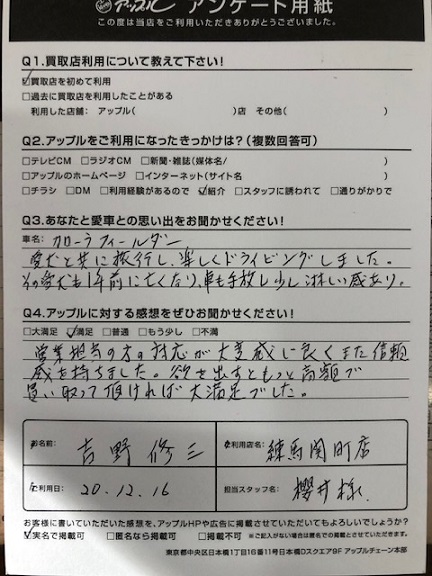 アップル アンケート用紙
この度は当店をご利用いただきありがとうございました。
Q1.買取店利用について教えて下さい!
☑買取店を初めて利用
□過去に買取店を利用したことがある
利用した店舗: アップル( )店 その他( )
Q2.アップルをご利用になったきっかけは?(複数回答可)
□テレビCM □ラジオCM □新聞・雑誌(媒体名/ )
□アップルのホームページ □インターネット(サイト名 )
□チラシ □DM □利用経験があるので ☑紹介 □スタッフに誘われて □通りがかりで
Q3.あなたと愛車との思い出をお聞かせください!
車名: カローラフィールダー
愛犬と共に旅行し、楽しくドライビングしました。
その愛犬も1年前に亡くなり、車も手放し少し淋しい感あり。
Q4.アップルに対する感想をぜひお聞かせください!
□大満足 ☑満足 □普通 □もう少し □不満
営業担当の方の対応が大変感じ良くまた信頼
感を持ちました。欲を出すともっと高額で
買い取って頂ければ大満足でした。
お名前: 吉野修三 ご利用店名: 練馬関町店
ご利用日: 20.12.16 担当スタッフ名: 櫻井様
お客様に書いていただいた感想を、アップルHPや広告に掲載させていただいてもよろしいでしょうか?
☑実名で掲載可 □匿名なら掲載可 □掲載不可 ※ご記入がない場合は匿名での掲載とさせていただきます。
東京都中央区日本橋1丁目16番11号日本橋Dスクエア9F アップルチェーン本部